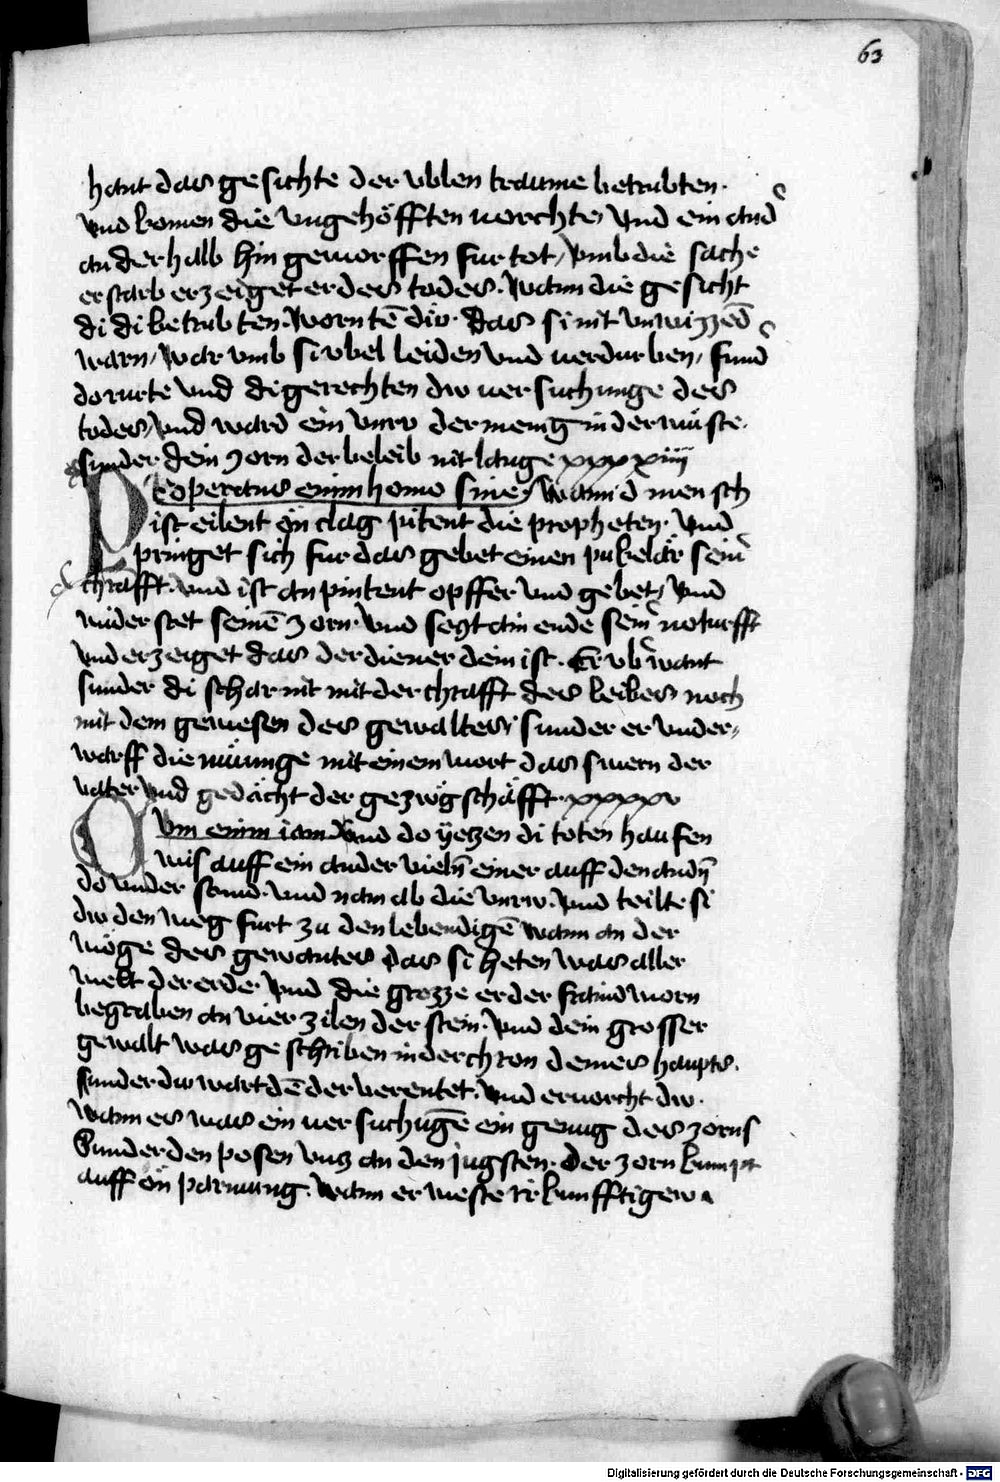 63
hant das gesichte der vblen traume betrubten.
vnd komen die vngehöfften vorchte, vnd ein and̄
anderhalb hin geworffen fur tot, vmb die sache
erstarb erzeiget er des todes. Wann die gesicht
di di betrubten. wornt diw. das si nit vnwizzēd
warn, war vmb si vbel leiden vnd verdurben, sund̄
do rurte vnd di gerechten diw versuchunge des
todes, vnd ward ein vnrw der menig in der wüste.
sunder dein zorn der beleib nit lange xxxxiiii
Properans enim homo sine, Wann d mensch
ist eilent ön clag pitent die propheten. vnd
pringet sich fur das gebet einen pukelär sein̄
chrafft. vnd ist an pintent opffer vnd gebet, vnd
wider stet seinē zorn. vnd sezt ain ende sein̄ noturfft
vnd erzeiget das der diener dein ist. Er vb̄want
sunder di schar nit mit der chrafft des leibes noch
mit dem gewefen des gewaltes, sunder er vnder,
warff die mäunge mit einem wort das swern der
vater vnd gedächt der gezwgschäfft. xxxxv
Cum enim iam vnd do yetzen di toten haufen
wis auff ein ander vieln̄ einer auff den andn̄
do vnder stund. vnd nam ab die vnrw. vnd teilte si
diw den weg furt zu den lebendigē wann an der
wöge des gewantes das si heten was aller
welt der erde. vnd die grozze er der
begraben an vier zilen der stein. vnd dein grosser
gewalt was geschriben in der chron deines haupts.
sunder diw wart dē der verentet. vnd ervorcht diw.
Wann es was ein versuchūge ein genug des zorns
Sunder den posen vnz an den jugsten. der zorn kumpt
auff ön parmung. wann er weste ir kunfftigew
Digitalisierung gefördert durch die Deutsche Forschungsgemeinschaft - DFG